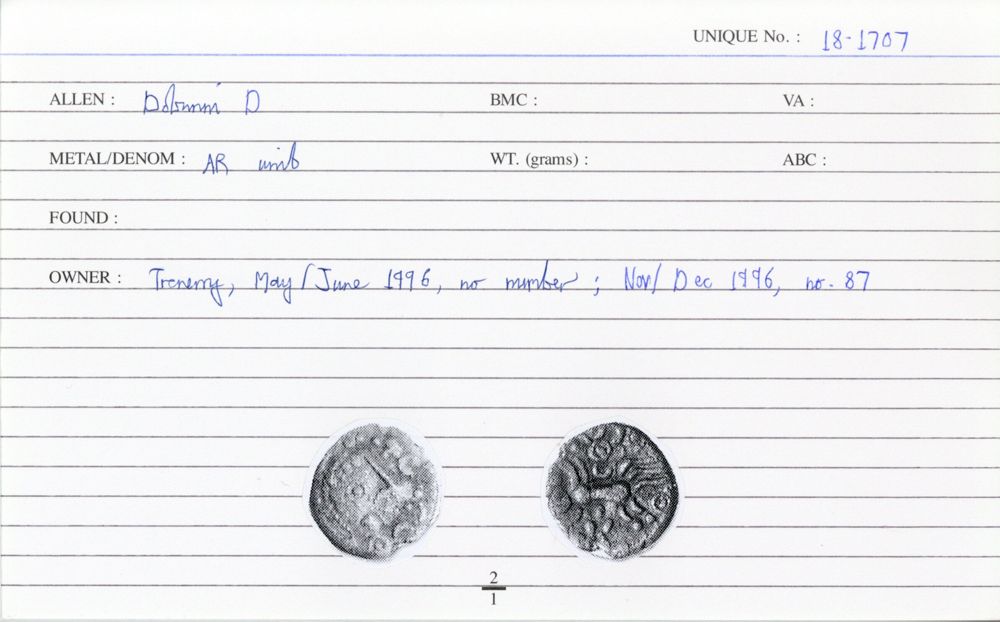 UNIQUE No. : 18-1707
ALLEN : Dobunni D BMC : VA :
METAL/DENOM : AR unit WT. (grams) : ABC :
FOUND :
OWNER : Trenerry, May/June 1996, no number ; Nov/Dec 1996, no. 87
2
1